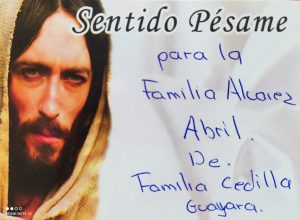 Sentido Pésame
para la
Familia Alcarez
Abril.
De.
Familia Cedilla
Guayara.